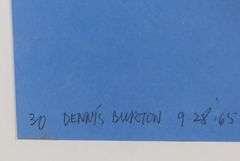 30 DENNIS BURTON 9 28 '65